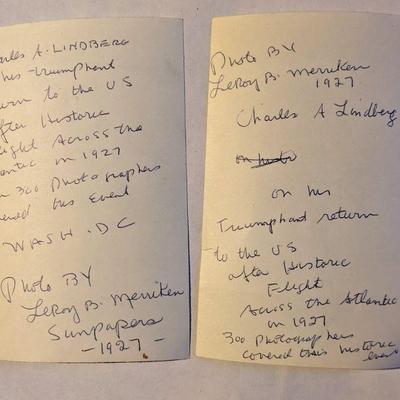 rles A. LINDBERG
his triumphant
urn to the US
after Historic
light Across the
lantic in 1927
300 Photographers
vered this Event
WASH. DC
Photo BY
LeRoy B. Merriken
Sunpapers
- 1927 -
Photo BY
LeRoy B. Merriken
1927
Charles A Lindberg
on his
Triumphant return
to the US
after Historic
Flight
Across the Atlantic
in 1927
300 Photographers
covered this historic
event